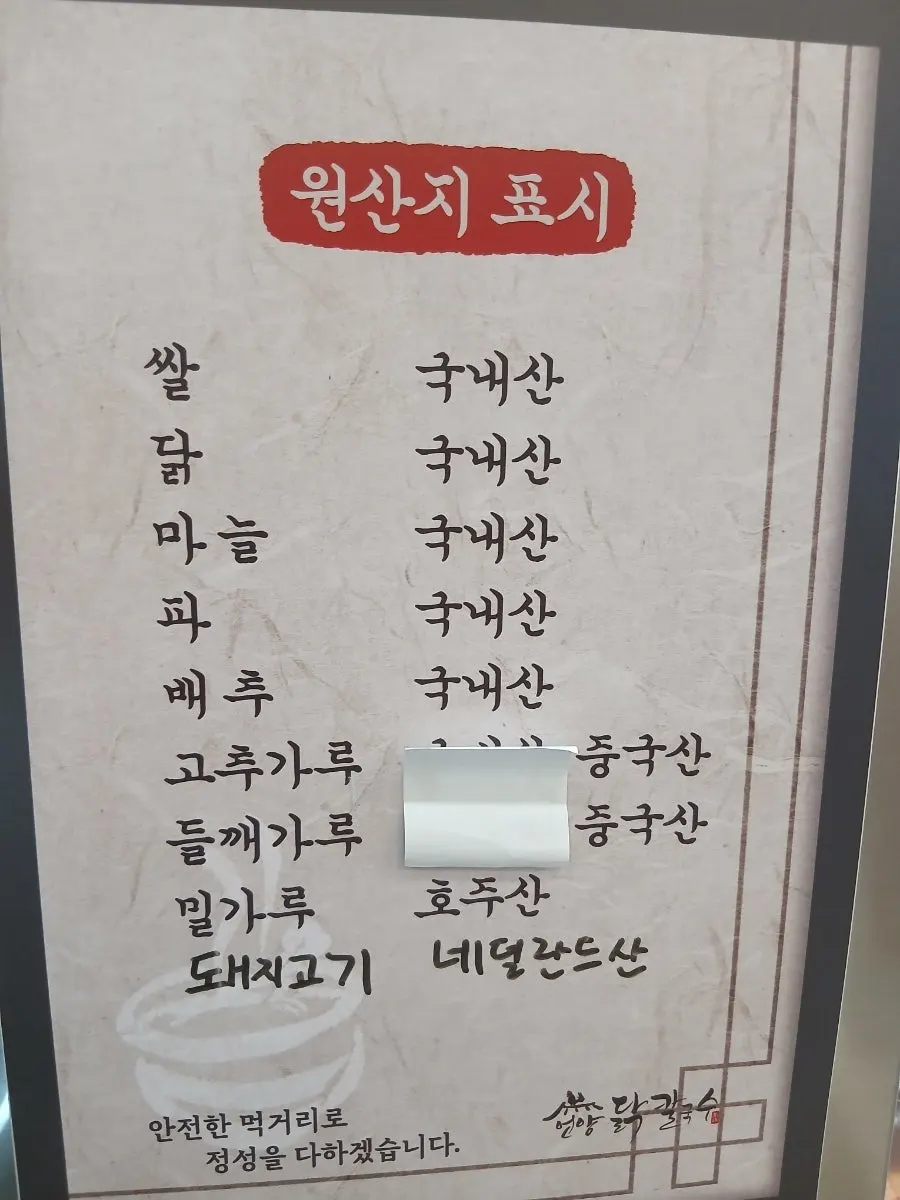 원산지 표시
쌀 국내산
닭 국내산
마늘 국내산
파 국내산
배추 국내산
고추가루 중국산
들깨가루 중국산
밀가루 호주산
돼지고기 네덜란드산
안전한 먹거리로
정성을 다하겠습니다.
언양 닭칼국수